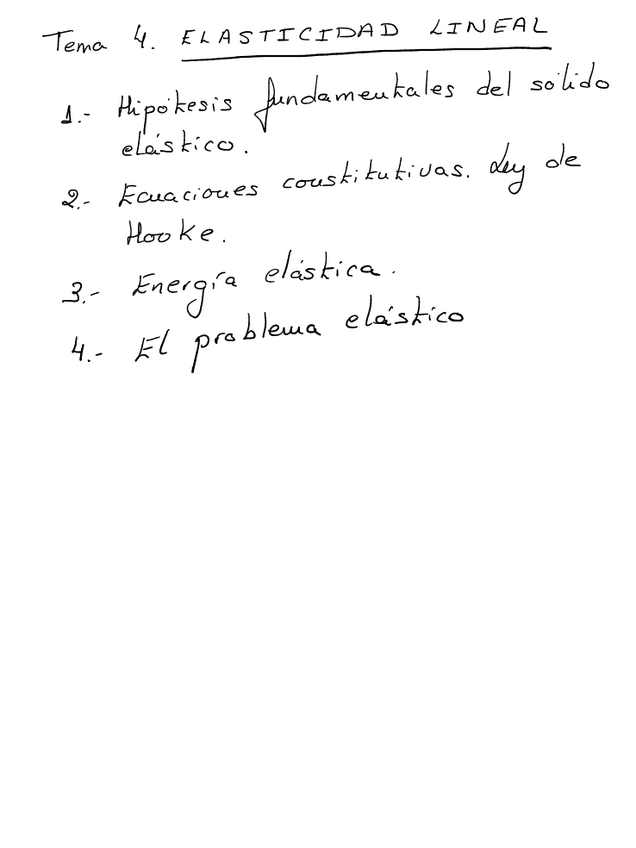 Tema 4. ELASTICIDAD LINEAL
1.- Hipótesis fundamentales del sólido
elástico.
2.- Ecuaciones constitutivas. Ley de
Hooke.
3.- Energía elástica.
4.- El problema elástico